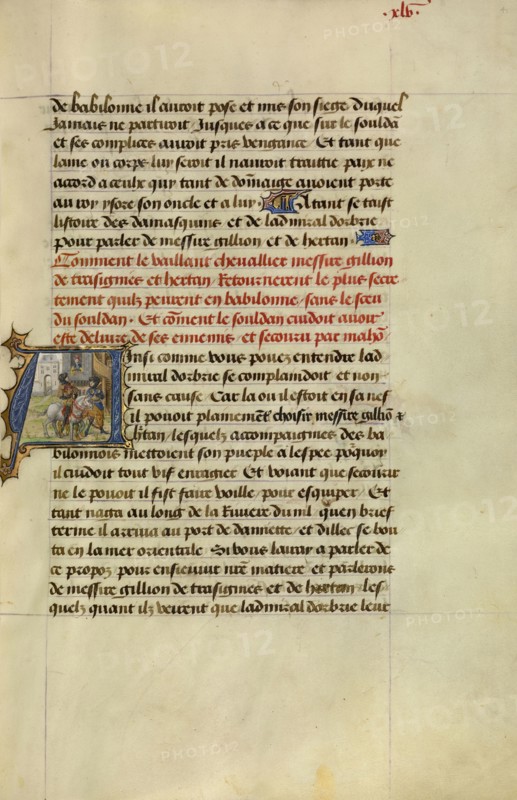 .xlv.
de babilonne il auroit pose et mis son siege duquel
Jamais ne partiroit Jusques a ce que sur le souldā
et ses complices auroit pris vengance / Et tant que
lame ou corps luy seroit il nauroit traittie paix ne
accord a ceulx quy tant de dōmaige auoient porte
au roy ysore son oncle et a luy. A tant se taist
listoire des damasquins et de ladmiral dorbrie
pour parler de messire gillion et de hertan.
Comment le vaillant chevallier messire gillion
de trasignies et hertan / Retournerent le plus secre
tement quilz peurent en babilonne / sans le sceu
du souldan. Et cōment le souldan cuidoit auoir
este deliure de ses ennemis et secouru par mahō
Ainsi comme vous pouez entendre lad
miral dorbrie se complaindoit et non
sans cause Car la ou il estoit en sa nef
il pouoit plainemēt choisir messire gilliō et
hertan / lesquelz accompaignies des ba
bilonnois mettoient son pueple a lespee pourquoy
il cuidoit tout vif enragier Et voiant que secourir
ne le pouoit il fist faire voille / pour esquiper / Et
tant naga au long de la Riuiere du nil quen brief
terme il arriua au port de damiette / et dillec se bou
ta en la mer orientale Si vous lairay a parler de
ce propoz pour ensieuuir nrē matiere et parlerons
de messire gillion de trasignies et de hertan / les
quelz quant ilz veirent que ladmiral dorbrie leur
PHOTO12